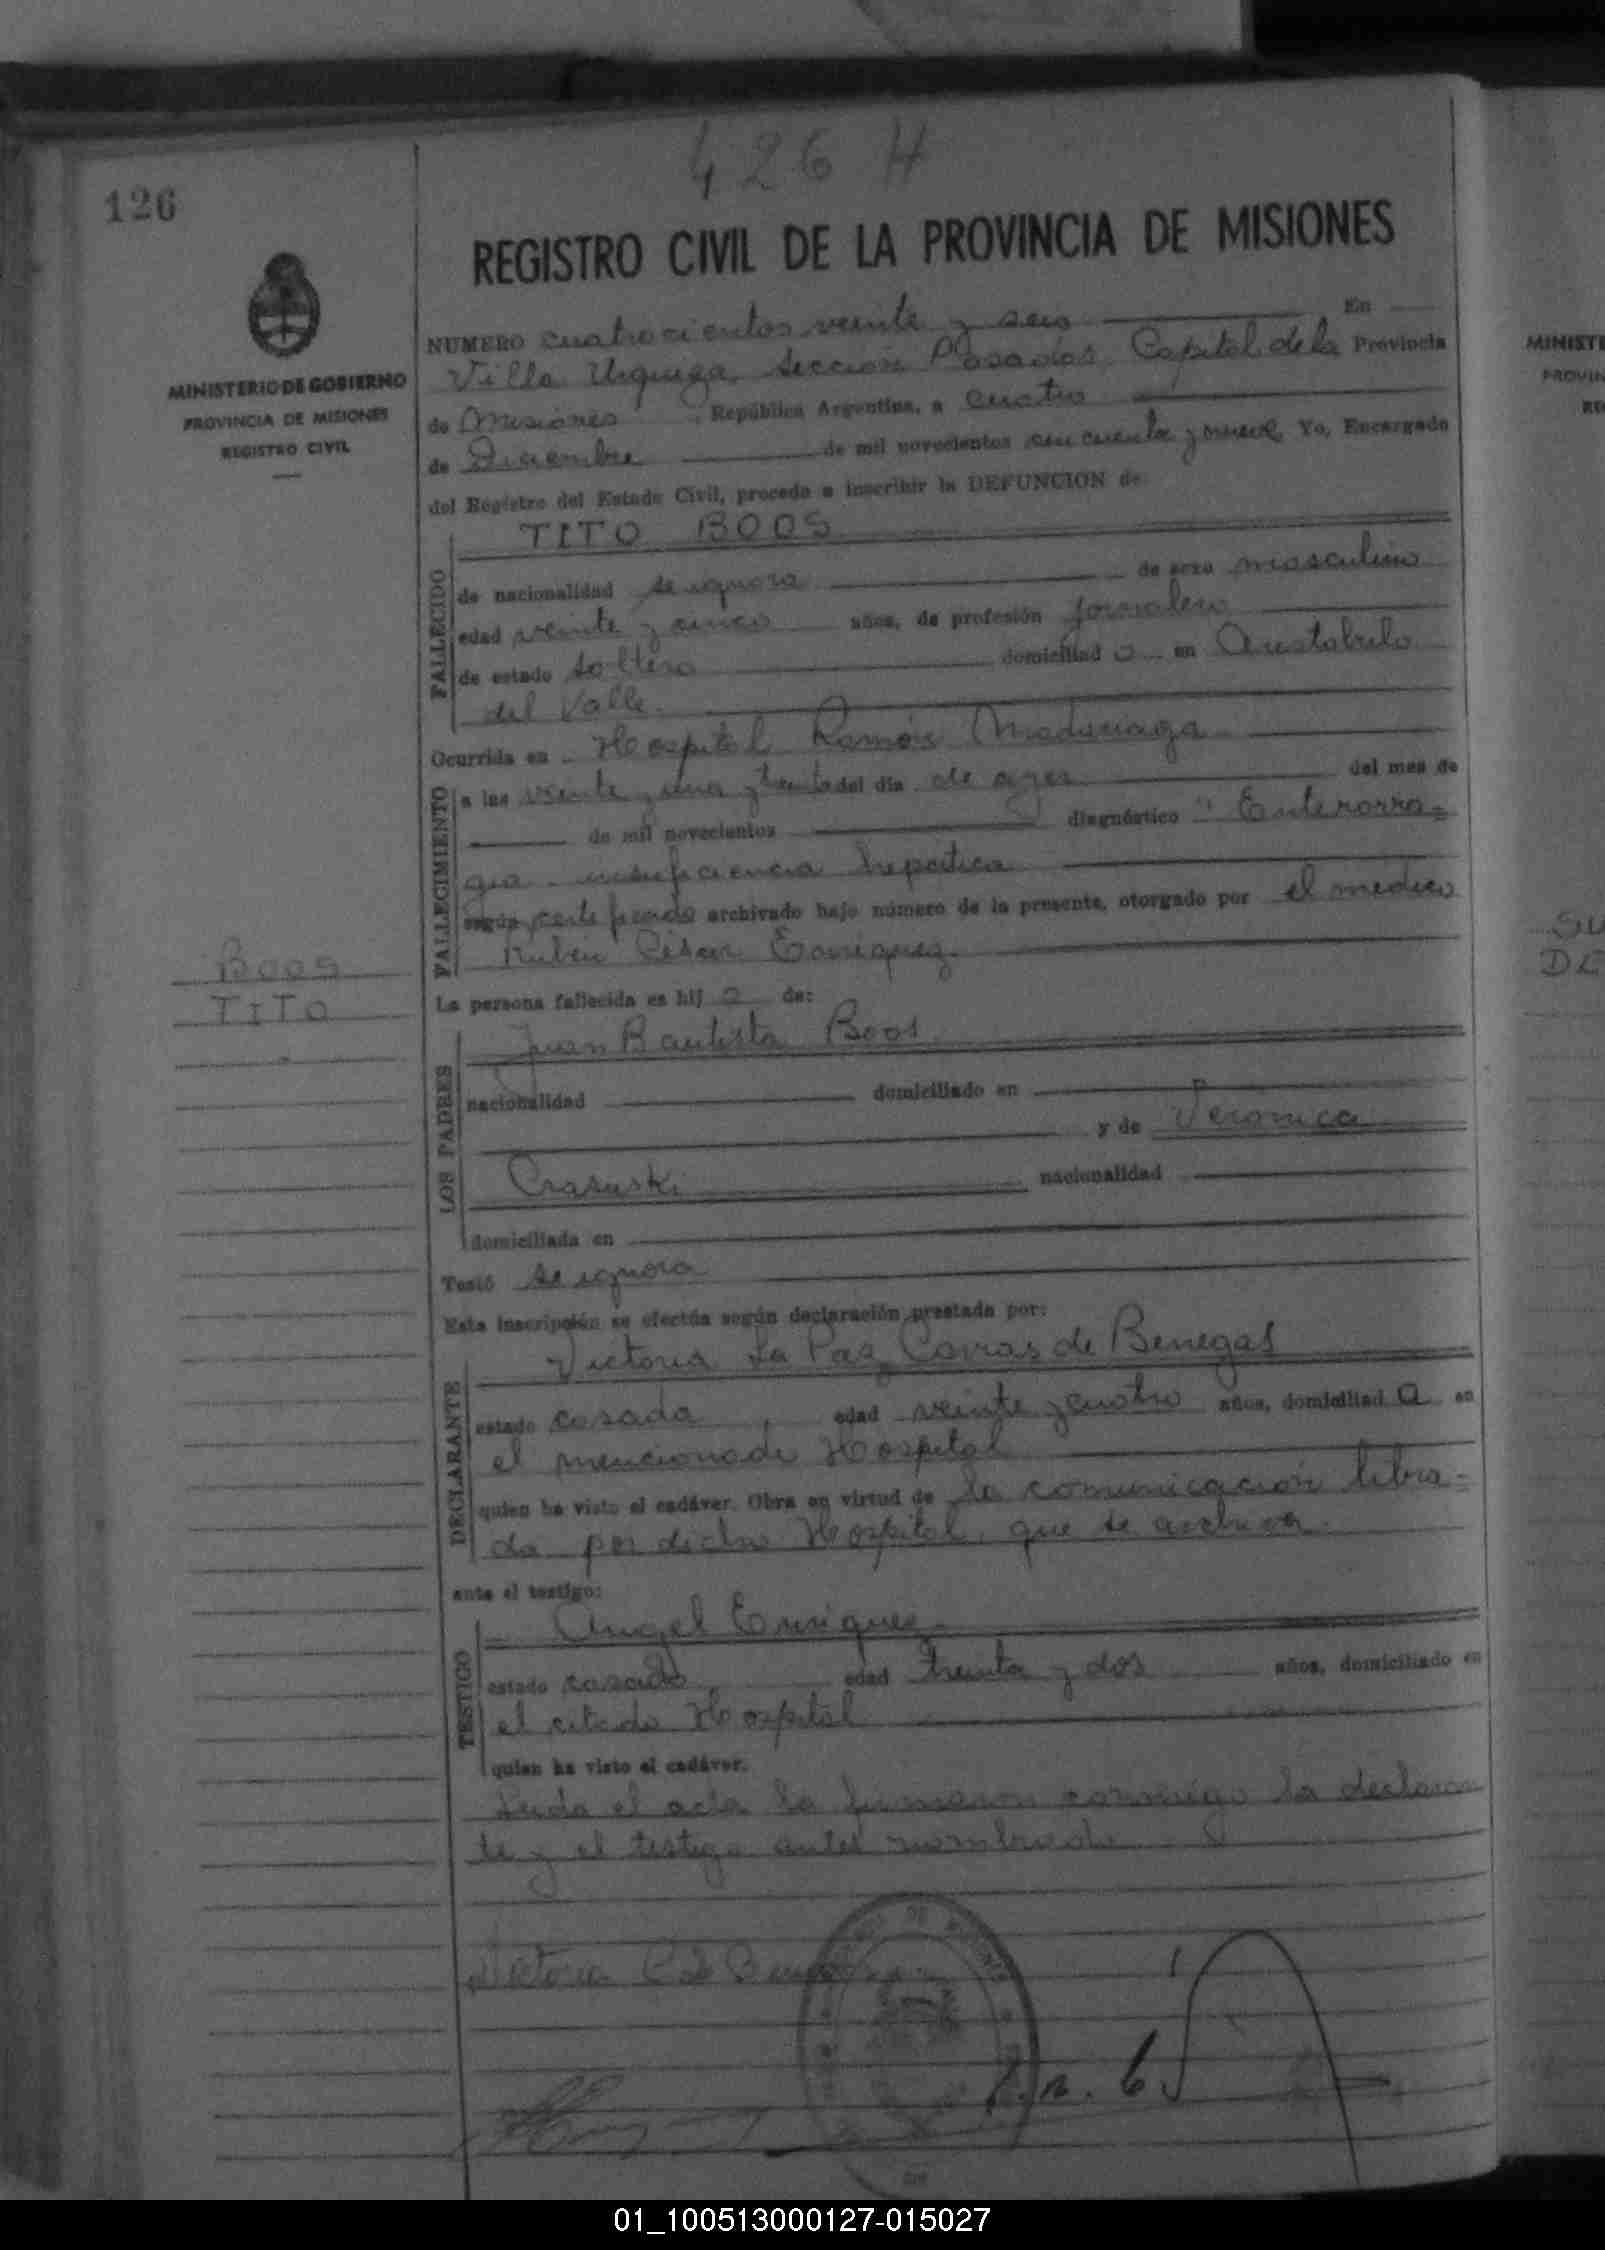 426 H
126
REGISTRO CIVIL DE LA PROVINCIA DE MISIONES
MINISTERIO DE GOBIERNO
PROVINCIA DE MISIONES
REGISTRO CIVIL
NUMERO cuatrocientos veinte y seis En
Villa Urquiza, Sección Posadas, Capital de la Provincia
de Misiones República Argentina, a cuatro
de Diciembre de mil novecientos cincuenta y nueve Yo, Encargado
del Registro del Estado Civil, procedo a inscribir la DEFUNCION de:
TITO BOOS
FALLECIDO
de nacionalidad se ignora de sexo masculino
edad veinte y cinco años, de profesión jornalero
de estado soltero domiciliad o en Aristobulo
del Valle.
Ocurrida en Hospital Ramón Madariaga
FALLECIMIENTO
a las veinte y una y treinta del día de ayer del mes de
de mil novecientos diagnóstico "Enterorra=
gia insuficiencia hepatica
según certificado archivado bajo número de la presente, otorgado por el medico
Ruben César Enriquez.
BOOS
TITO
La persona fallecida es hij o de:
LOS PADRES
Juan Bautista Boos
nacionalidad domiciliado en
y de Veronica
nacionalidad
domiciliada en
Testó se ignora
Esta inscripción se efectúa según declaración prestada por:
DECLARANTE
Victoria La Paz de Benegas
estado casada, edad veinte y cuatro años, domiciliad a en
el mencionado Hospital
quien ha visto el cadáver. Obra en virtud de la comunicación libra=
da por dicho Hospital, que se archiva.
ante el testigo:
TESTIGO
Angel Enriquez.
estado casado edad treinta y dos años, domiciliado en
el citado Hospital
quien ha visto el cadáver.
Leida el acta la firmaron conmigo la declaran
te y el testigo antes nombrado
Victoria C de
MINISTE
PROVIN
RE
SU
DE
01_100513000127-015027